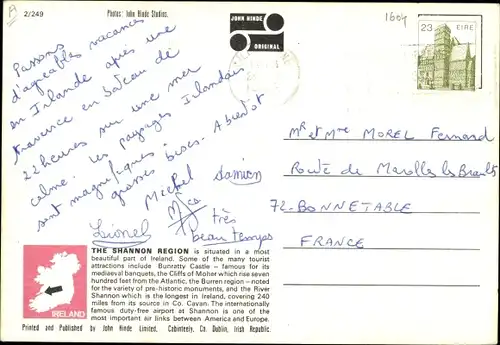 2/249
Photos: John Hinde Studios.
JOHN HINDE
ORIGINAL
1604
23 EIRE
Passons
d'agréables vacances
en Irlande après une
traversée en bateau de
22 heures sur une mer
calme. Les paysages Irlandais
sont magnifiques.
grosses bises. A bientôt
Michel Damien
Lionel
très
beau temps
Mr et Mme MOREL Fernand
Route de Marolles les Braults
72-BONNETABLE
FRANCE
THE SHANNON REGION is situated in a most
beautiful part of Ireland. Some of the many tourist
attractions include Bunratty Castle – famous for its
mediaeval banquets, the Cliffs of Moher which rise seven
hundred feet from the Atlantic, the Burren region – noted
for the variety of pre-historic monuments, and the River
Shannon which is the longest in Ireland, covering 240
miles from its source in Co. Cavan. The internationally
famous duty-free airport at Shannon is one of the
most important air links between America and Europe.
IRELAND
Printed and Published by John Hinde Limited, Cabinteely, Co. Dublin, Irish Republic.